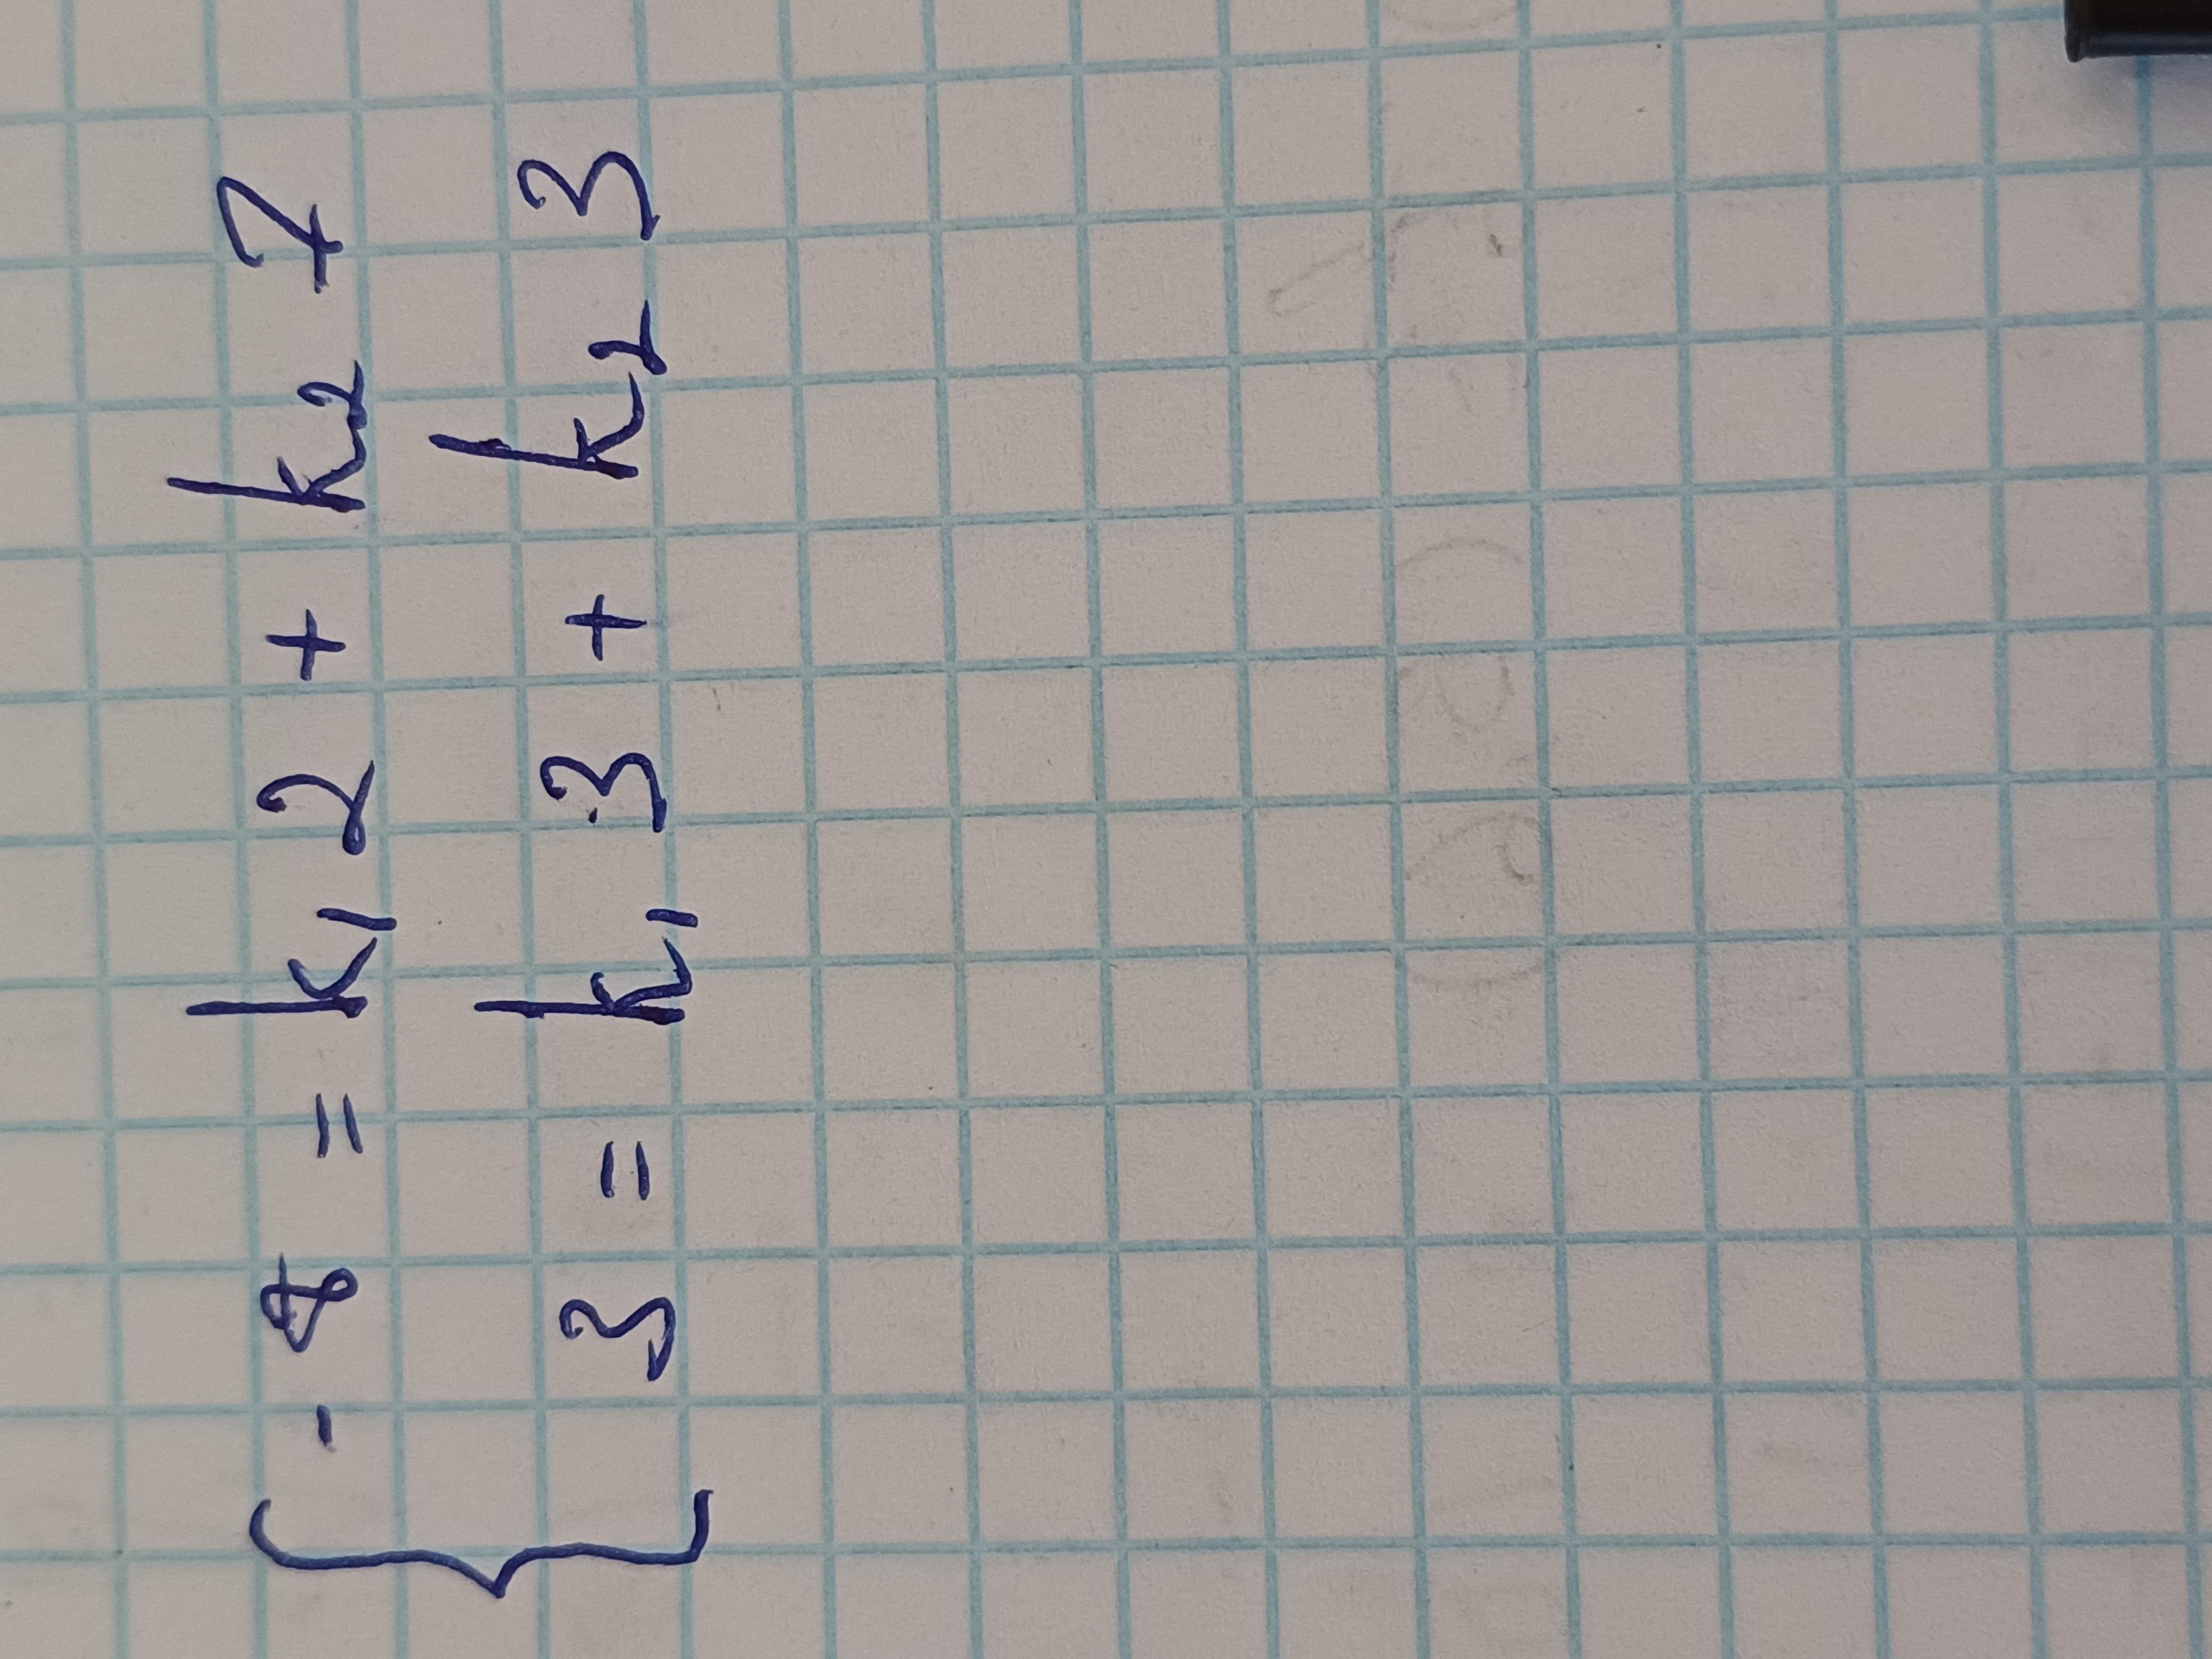 - 8 = k₁ 2 + k₂ 7
3 = k₁ 3 + k₂ 3